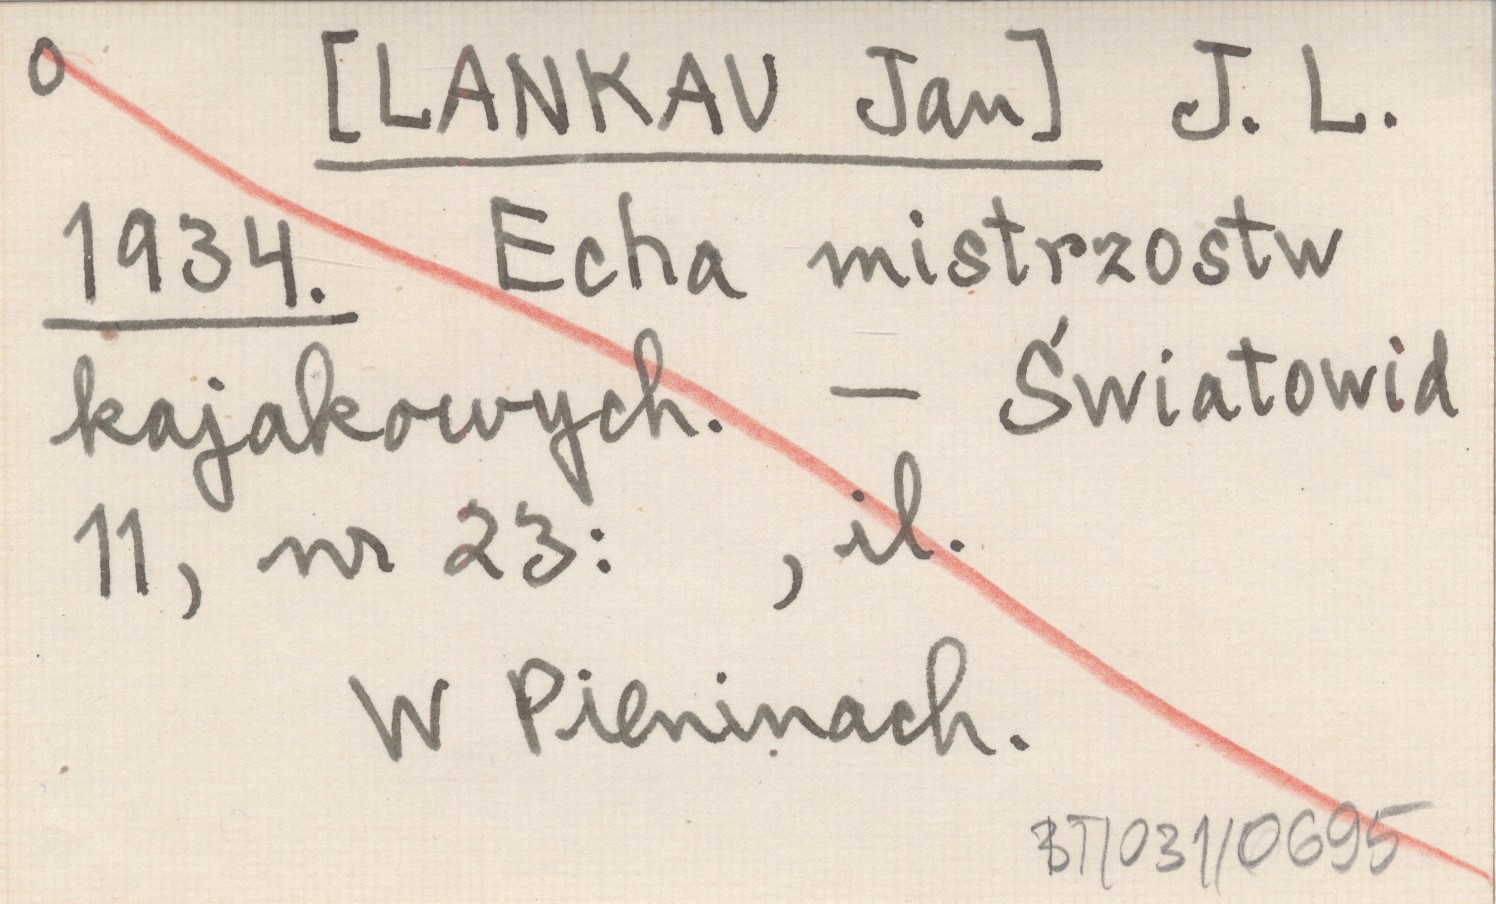 o [LANKAU Jan] J. L.
1934. Echa mistrzostw
kajakowych. — Światowid
11, nr 23: , il.
W Pieninach.
BT/031/0695